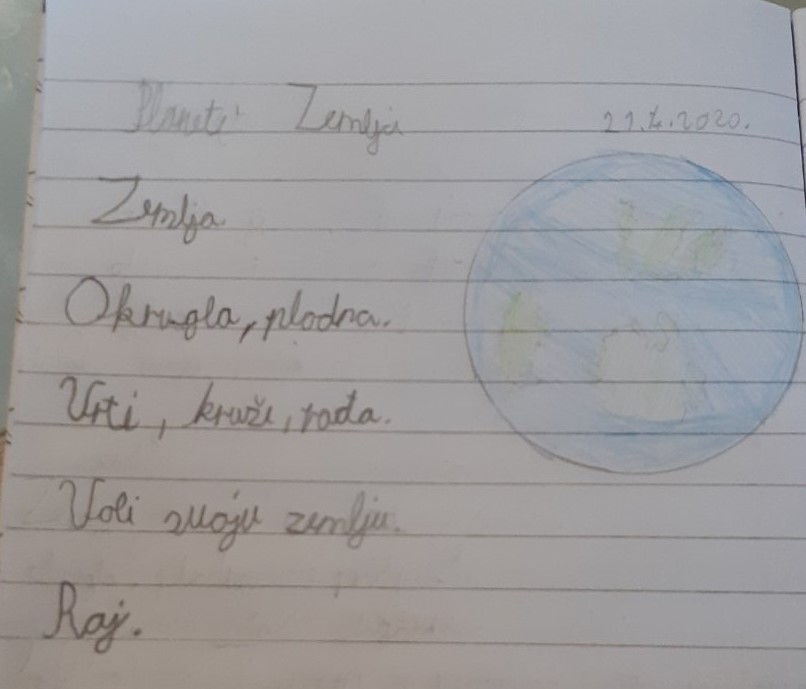 Planeta Zemlja 21.4.2020.
Zemlja.
Okrugla, plodna.
Vrti, kruži, rađa.
Voli svoju zemlju.
Raj.